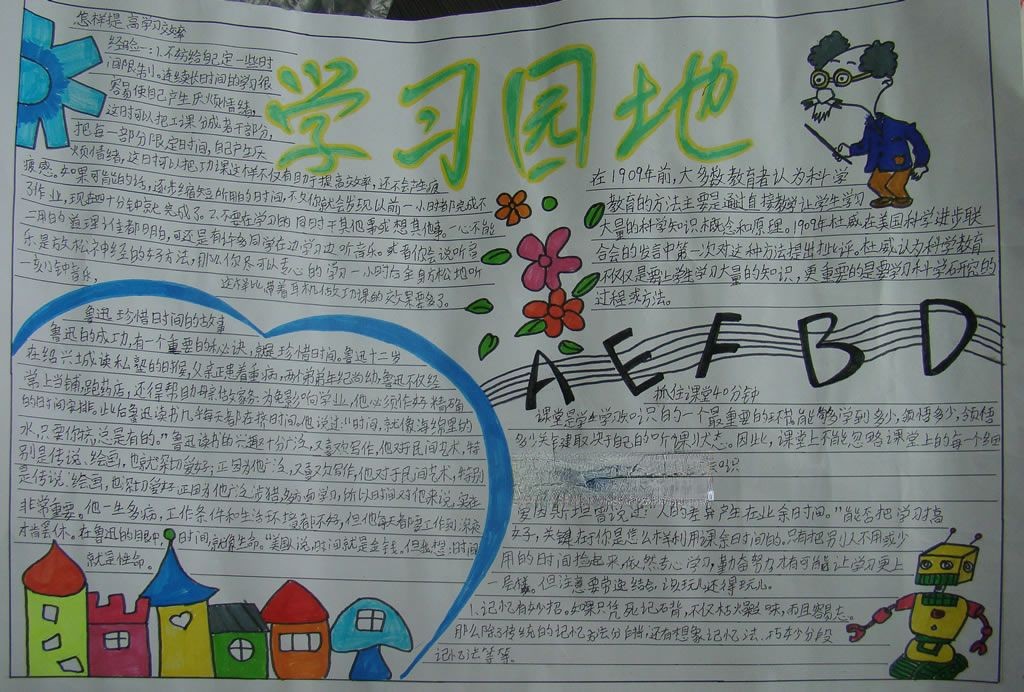 学习园地
怎样提高学习效率
经验一:1.不妨给自己定一些时
间限制。连续长时间的学习很
容易使自己产生厌烦情绪,
这时可以把功课分成若干部分,
把每一部分限定时间,自己产生厌
烦情绪,这日可以把功课这样不仅有助于提高效率,还不会产生疲
疲感。如果可能的话,逐步缩短所用的时间,不久你就会发现以前一小时都完成不
了作业,现在四十分钟就完成了。2.不要在学习的同时干其他事或想其他事。一心不能
二用的道理谁都明白,可还是有许多同学在边学习边听音乐。或者你会说听音
乐是放松神经的好方法,那么你尽可以专心的学习一小时后全身放松地听
一刻钟音乐,这样比带着耳机做功课的效果要多了。
在1909年前,大多数教育者认为科学
教育的方法主要是通过直接教学让学生学习
大量的科学知识概念和原理。1909年杜威在美国科学进步联
合会的发言中第一次对这种方法提出批评。杜威认为科学教育
不仅仅是要让学生学习大量的知识,更重要的是要学习科学研究的
过程或方法。
A E F B D
鲁迅珍惜日时间的故事
鲁迅的成功,有一个重要的秘诀,就是珍惜时间。鲁迅十二岁
在绍兴城读私塾的时候,父亲正患着重病,两个弟弟年纪尚幼,鲁迅不仅经
常上当铺,跑药店,还得帮助母亲做家务;为免影响学业,他必须作好精确
的时间安排。此后鲁迅读书几乎每天都在挤时间。他说过:“时间,就像海绵里的
水,只要你挤,总是有的。”鲁迅读书的兴趣十分广泛,又喜欢写作,他对于民间艺术,特
别是传说、绘画,也深切爱好;正因为他广泛,又喜欢写作,他对于民间艺术,特别
是传说、绘画,也深切爱好正因为他广泛涉猎,多方面学习,所以日时间对他来说,实在
非常重要。他一生多病,工作条件和生活环境都不好,但他每天都要工作到深夜
才肯罢休。在鲁迅的眼中,时间就像生命。“美国人说,时间就是金钱。但我想:时间
就是性命。
抓住课堂40分钟
课堂是学生学习知识的一个最重要的环节,能够学到多少,领悟
多少关键取决于自己的听课状态。因此,课堂上不能忽略课堂上的每个细
爱因斯坦曾说过“人的差异产生在业余时间。”能否把学习搞
好,关键在于你是怎么样利用课余日时间的。只有把别人不用或少
用的时间捡起来,依然专心学习,勤奋努力才有可能让学习更上
一层楼。但注意要劳逸结合,该玩儿还得玩儿。
1.记忆有妙招。如果只凭死记硬背,不仅枯燥乏味,而且容易忘。
那么除了传统的记忆方法分自错,还有想象记忆法、巧妙分段
记忆法等等。